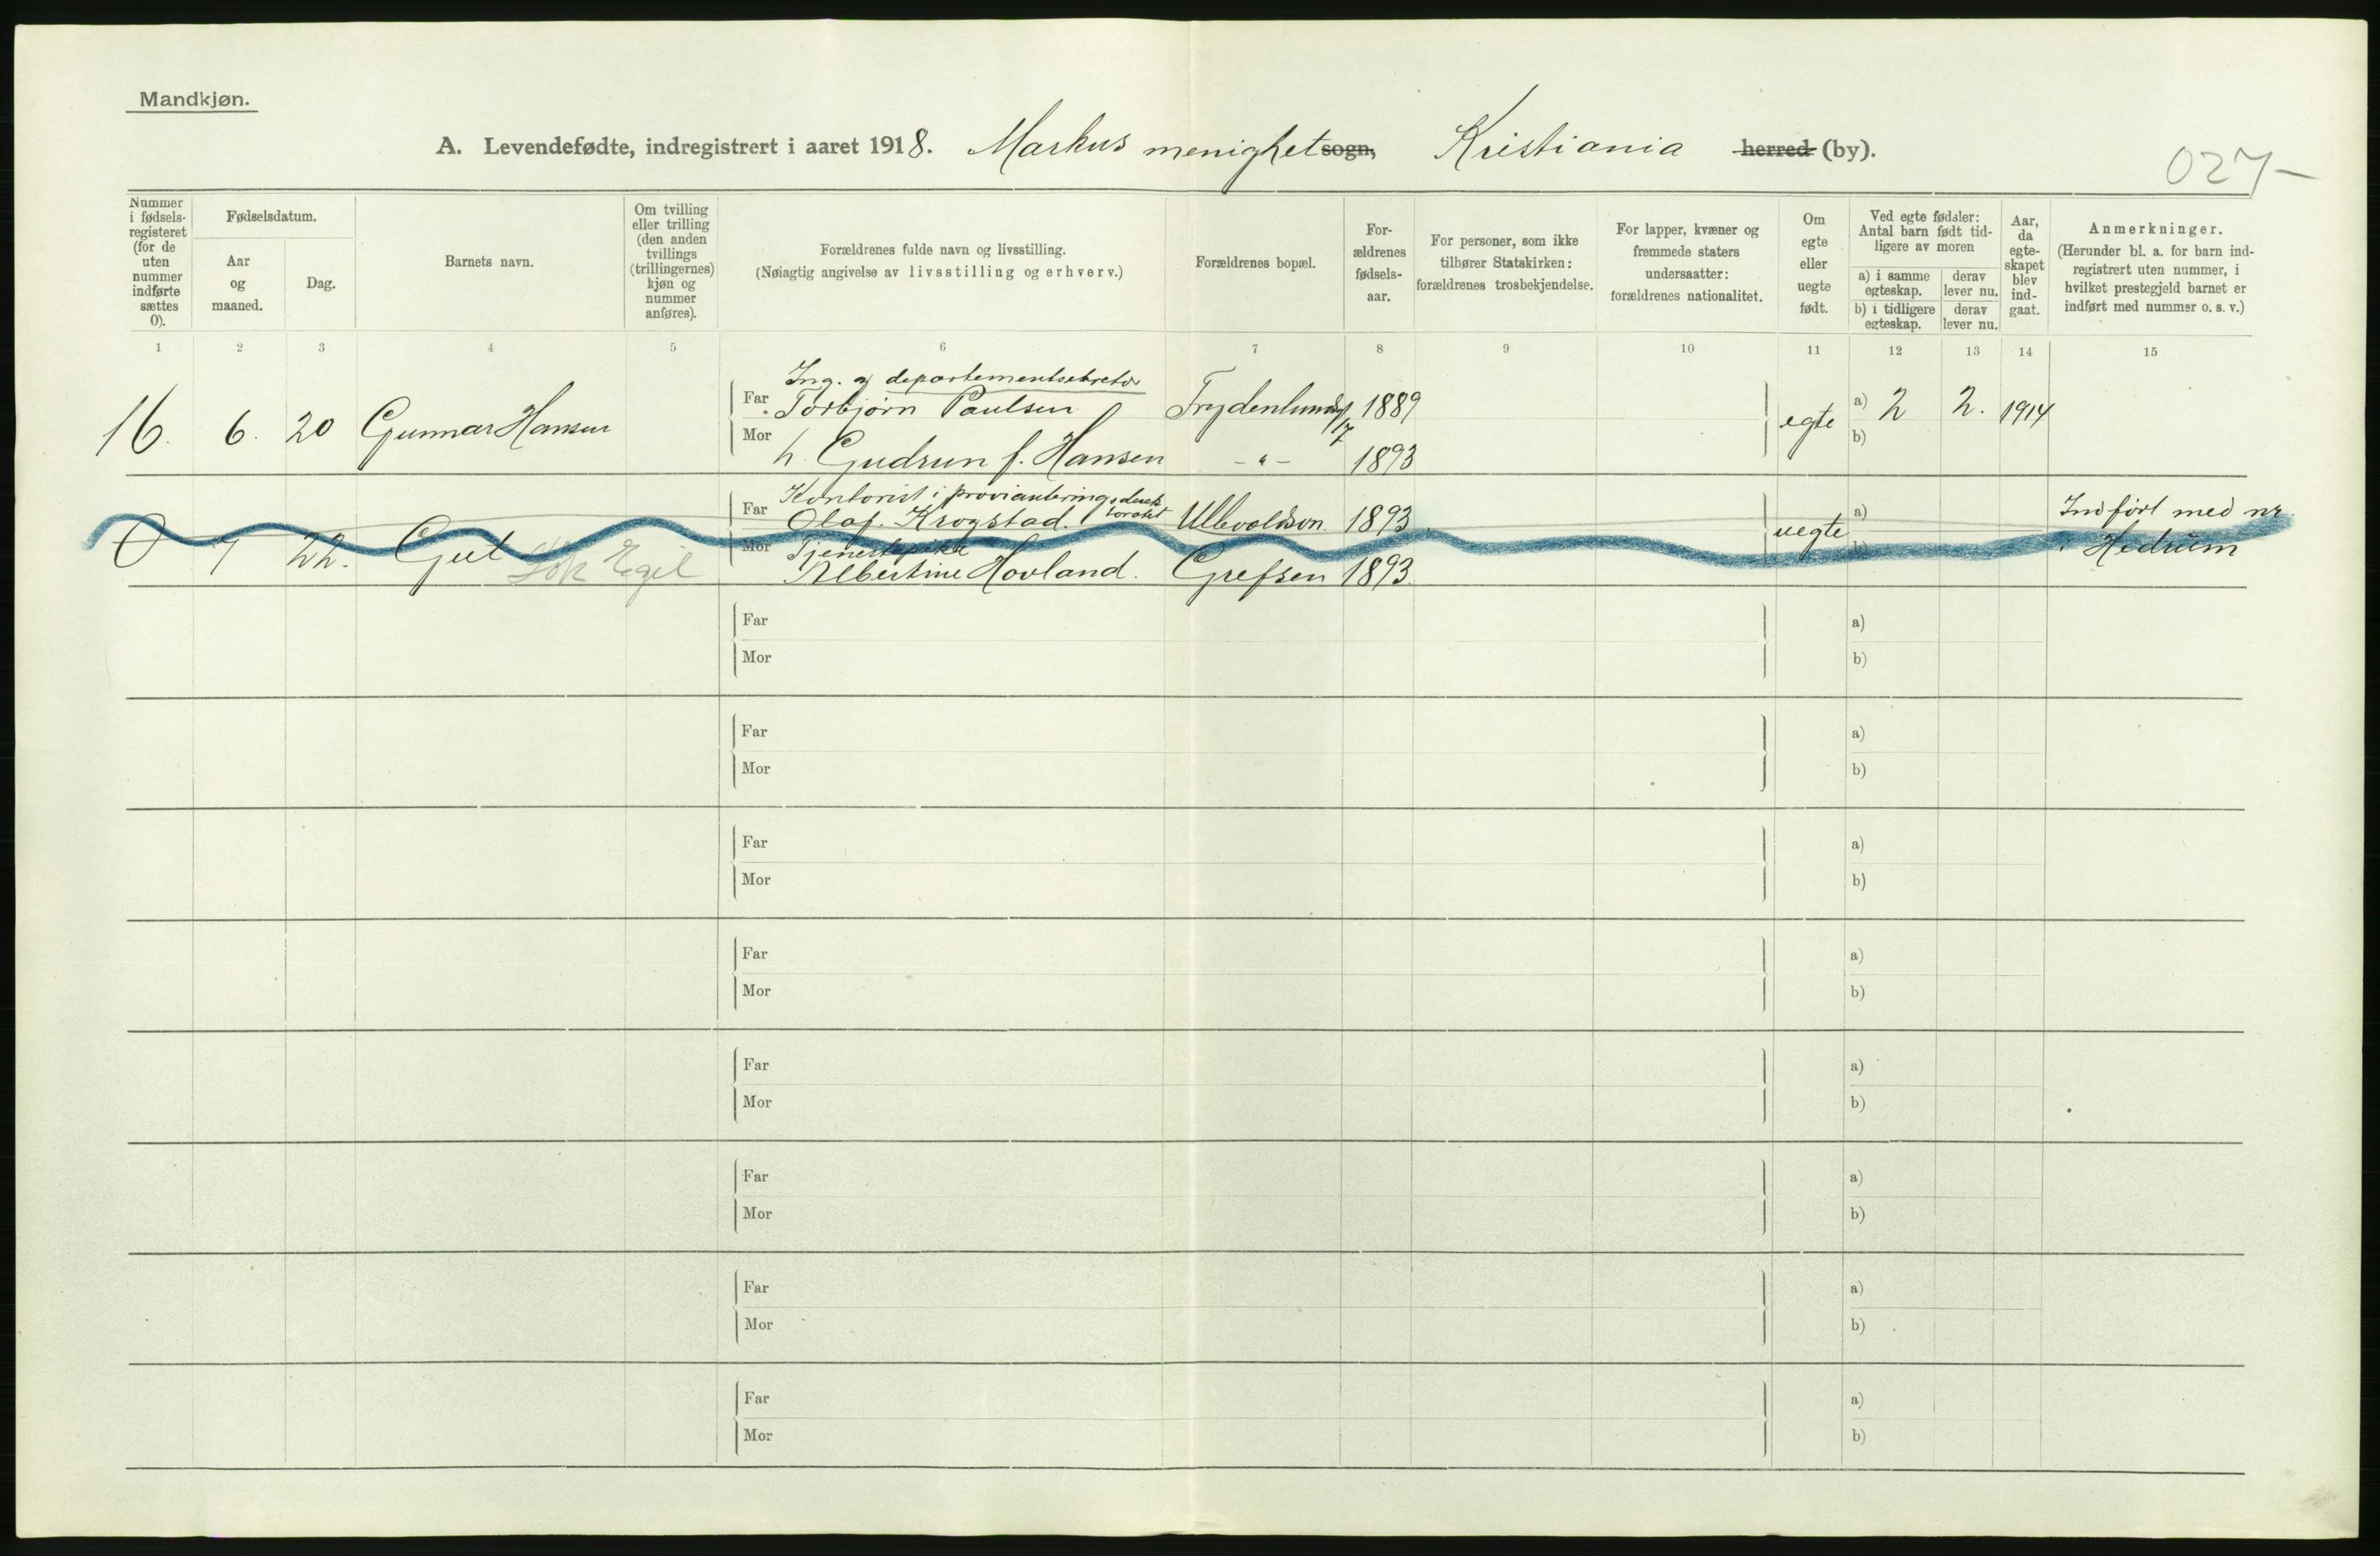 Mandkjøn.
A. Levendefødte, indregistrert i aaret 1918. Markus menighet sogn, Kristiania herred (by).
027-
Nummer i fødsels-registeret (for de uten nummer indførte sættes 0).
Fødselsdatum.
Aar og maaned.
Dag.
Barnets navn.
Om tvilling eller trilling (den anden tvillings (trillingernes) kjøn og nummer anføres).
Forældrenes fulde navn og livsstilling.
(Nøiagtig angivelse av livsstilling og erhverv.)
Forældrenes bopæl.
For-ældrenes fødsels-aar.
For personer, som ikke tilhører Statskirken: forældrenes trosbekjendelse.
For lapper, kvæner og fremmede staters undersaatter: forældrenes nationalitet.
Om egte eller uegte født.
Ved egte fødsler: Antal barn født tid-ligere av moren
a) i samme egteskap.
derav lever nu.
b) i tidligere egteskap.
derav lever nu.
Aar, da egte-skapet blev ind-gaat.
Anmerkninger.
(Herunder bl. a. for barn ind-registrert uten nummer, i hvilket prestegjeld barnet er indført med nummer o. s. v.)
1 2 3 4 5 6 7 8 9 10 11 12 13 14 15
Ing. og departementsekretær
16. 6. 20 Gunnar Hansen Far Torbjørn Paulsen Frydenlundsg 17 1889 egte a) 2 2. 1914
Mor h. Gudrun f. Hansen -"- 1893 b)
Kontorist i provianteringsdirektoratet
Far Olaf Krogstad. Ullevoldsvn. 1893 uegte a) Indført med nr.
0 7 22. Gut Egil Mor Tjenestepike b) i Hedrum
Albertine Hovland. Grefsen 1893.
Far a)
Mor b)
Far a)
Mor b)
Far a)
Mor b)
Far a)
Mor b)
Far a)
Mor b)
Far a)
Mor b)
Far a)
Mor b)
Far a)
Mor b)